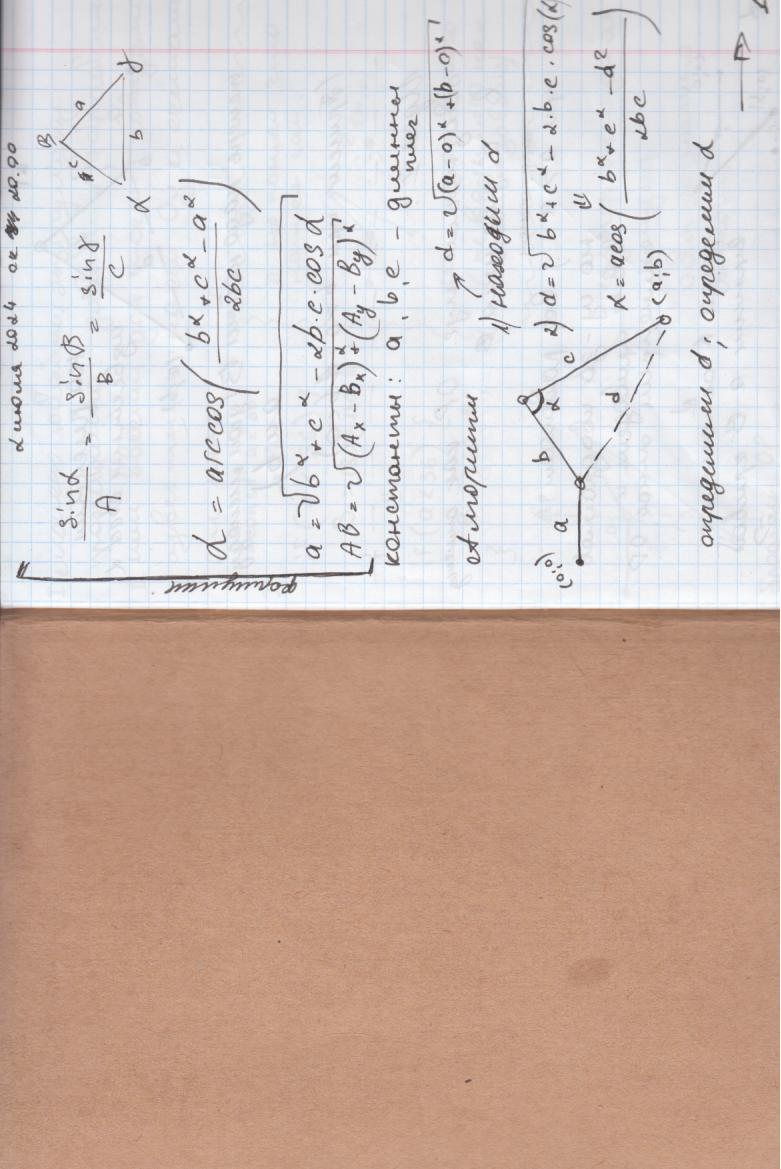 2 июля 2024 ок 20.90
sinα/A = sinB/B = sinγ/C
B
c a
α b γ
α = arccos((b²+c²-a²)/2bc)
a = √b²+c²-2b·c·cosα
AB = √(Ax-Bx)²+(Ay-By)²
формулы
константы: a, b, c - длинны
плеч
Алгоритм
1) находим d
d = √(a-0)²+(b-0)²
2) d = √b²+c²-2·b·c·cos(α
⇓
α = acos((b²+c²-d²)/2bc)
(0;0) a b α c d (a;b)
определили d; определили α